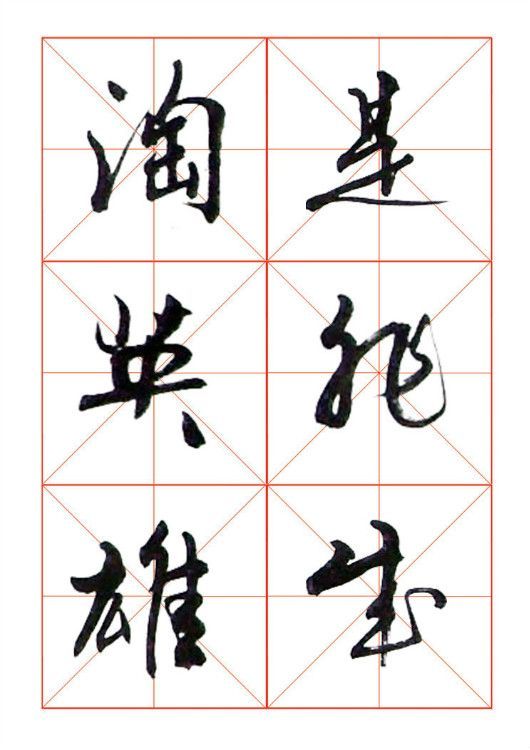 淘英雄
是非成